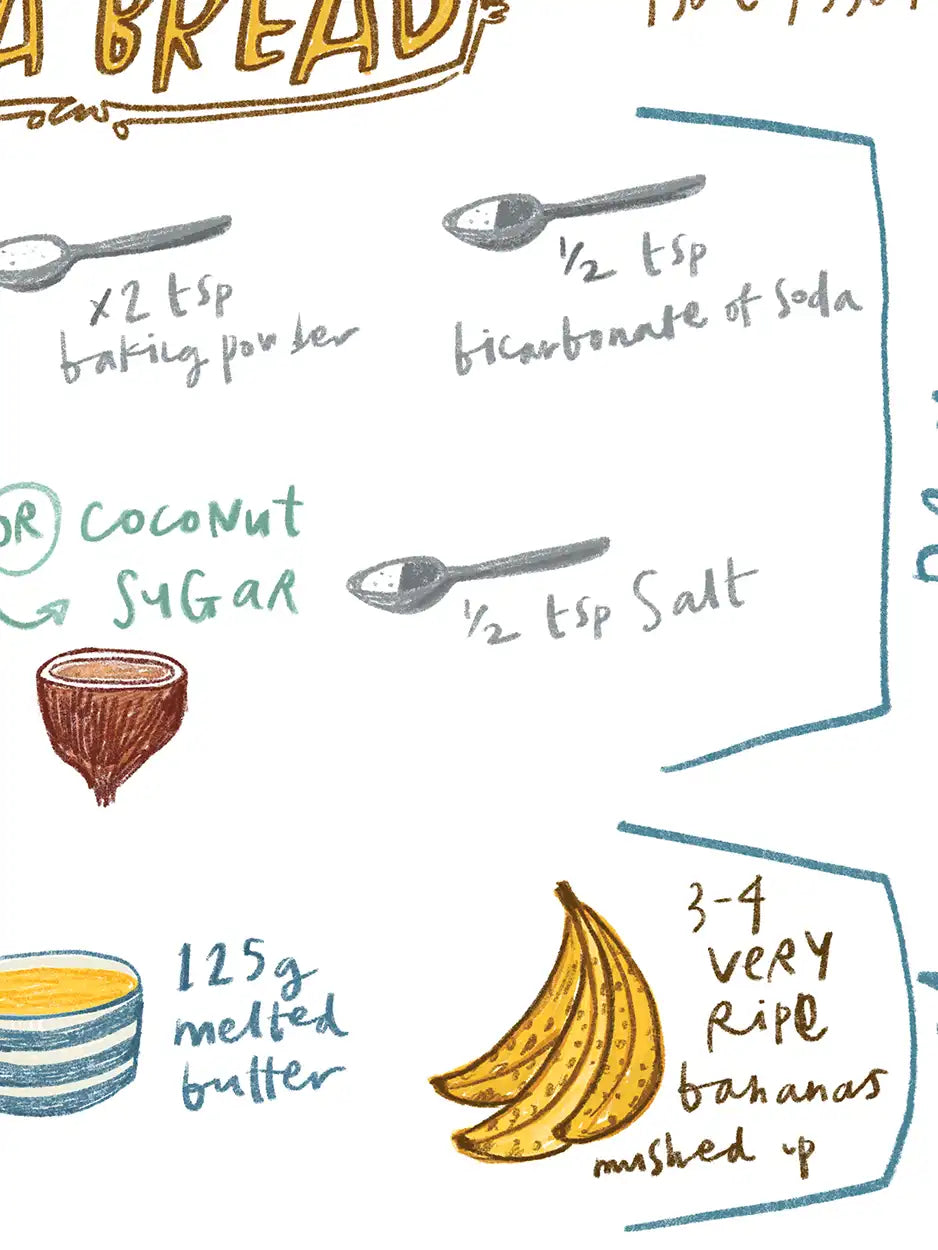 BREAD
x2 tsp
baking powder
1/2 tsp
bicarbonate of Soda
OR COCONUT
SUGAR
1/2 tsp Salt
125g
melted
butter
3-4
VERY
RIPE
bananas
mushed up